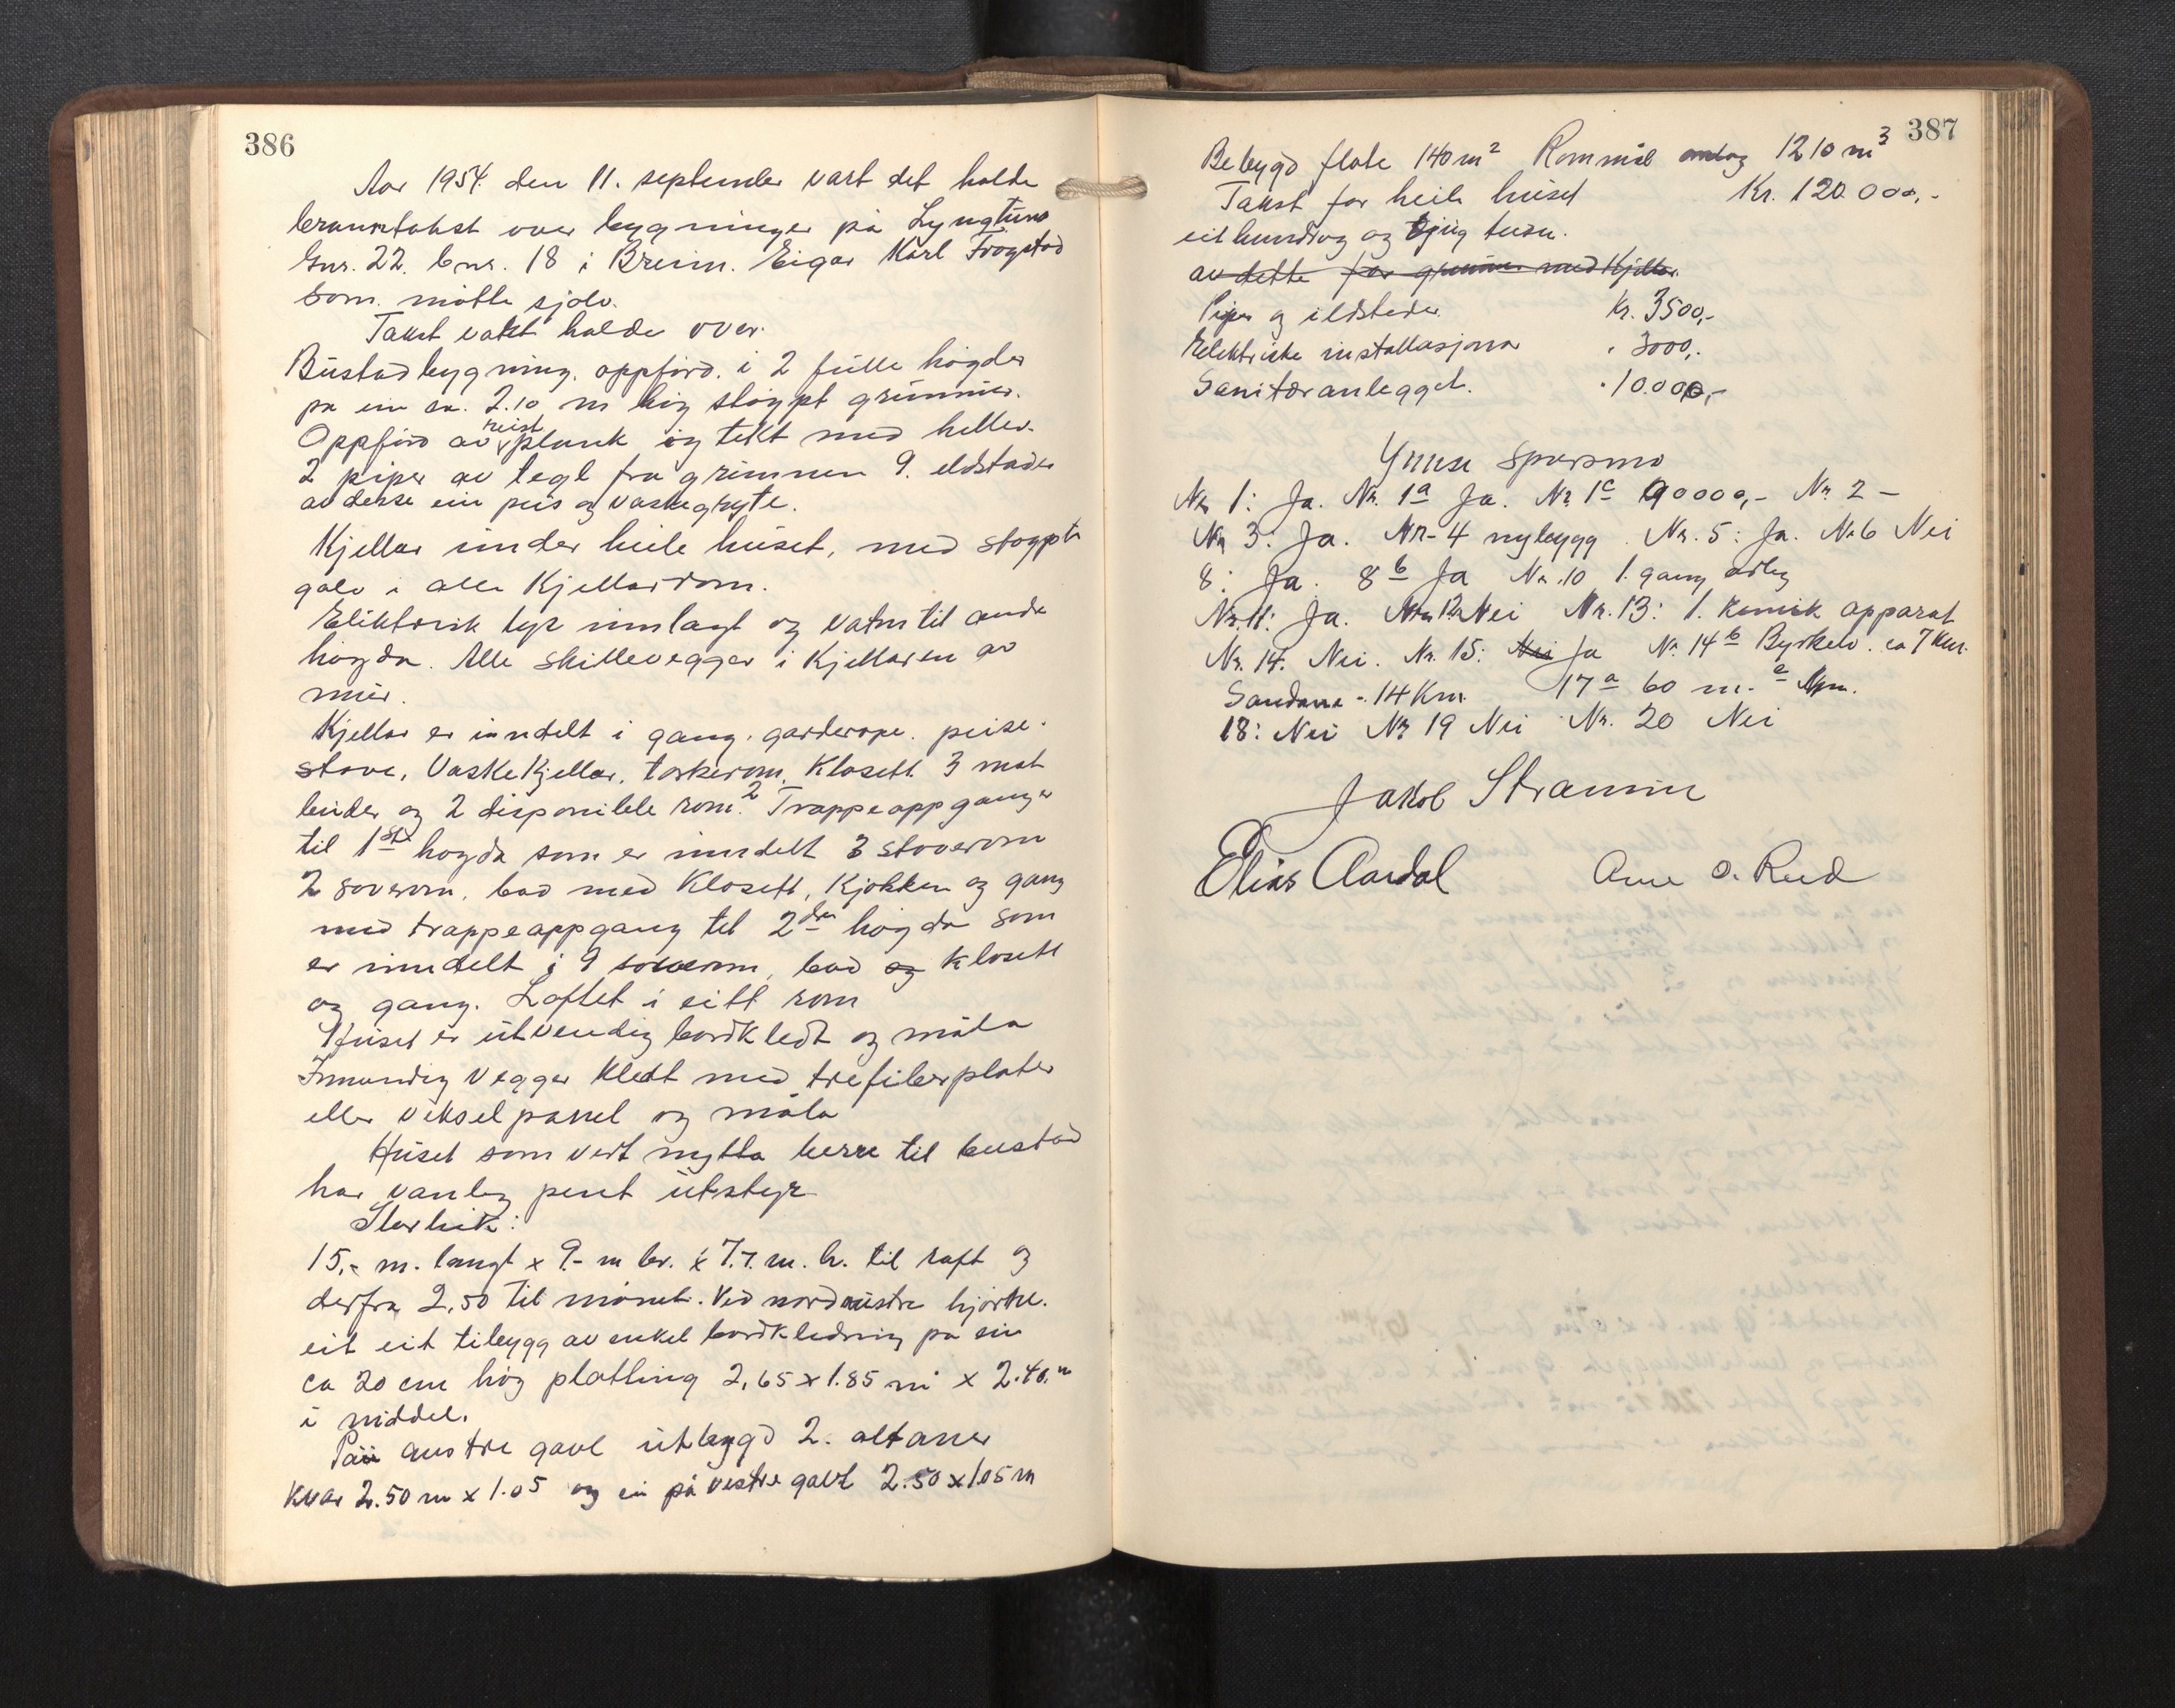 386
Aar 1954. den 11. september vart det halde
branntakst over bygninger på Lyngtun
Gnr. 22. bnr. 18 i Breim. Eigar Karl Frøgstad
som. møtte sjølv.
Takst vart halde over.
Bustadbygning. oppførd. i 2 fulle høgder
på ein ca. 2.10 m høg støypt grunmur.
Oppførd av reist plank og tekt med heller.
2 piper av tegl fra grunnen 9. eldstader
av desse ein peis og vaskegryte.
Kjellar under heile huset, med støypt
golv i alle Kjellarrom.
Elektrisk lys innlagt og vatn til andre
høgda. Alle skillevegger i Kjellaren av
mur.
Kjellar er inndelt i gang. garderope. peise-
stove, Vaskekjellar. tørkerom, Klosett 3 mat
buder og 2 disponible rom. 2 Trappeoppganger
til 1ste høgda som er inndelt 3 stoverom
2 soverom. bad med Klosett, Kjøkken og gang
med trappeoppgang til 2dre høgda som
er inndelt i 9 soverom, bad og klosett
og gang. Loftet i eitt rom
Huset er utvendig bordkledt og måla
Innvendig vegger kledt med trefiberplater
eller vekselpanel og måla
Huset som vert nytta berre til bustad
har vanleg pent utstyr
Storleik:
15,- m. langt x 9.- m br. x 7.7. m. h. til raft og
derfra 2,50 til mønet. Ved nordaustre hjørne.
eit eit tilbygg av enkel bordkledning på ein
ca 20 cm høg platting 2,65 x 1.85 m x 2.40. m
i middel.
På austre gavl utbygd 2. altaner
Kvar 2.50 m x 1.05 og ein på vestre gavl 2.50 x 1.05 m
387
Bebygd flate 140 m² Rommål omlag 1210 m³
Takst for heile huset Kr. 120.000,-
eit hundrog og tjug tusn.
av dette for grunnmur med Kjellar.
Piper og ildsteder. Kr. 3500,-
Elektriske installasjonar " 3000,-
Sanitæranlegget. " 10.000,-
Ymse spørsmo
Nr 1: Ja. Nr. 1a Ja. Nr 1c 90000,- Nr. 2 -
Nr 3: Ja. Nr- 4 nybygg. Nr. 5: Ja. Nr 6 Nei
8: Ja. 8b Ja Nr. 10 1. gang årleg
Nr. 11: Ja. Nr 12 Nei Nr. 13: 1. kemisk apparat
Nr. 14. Nei. Nr. 15: Nei Ja Nr 14b Byrkelo. ca 7 km.
Sandane - 14 Km. 17a 60 m.
18: Nei Nr 19 Nei Nr. 20 Nei
Jakob
Elias Aardal Arne O. Reed